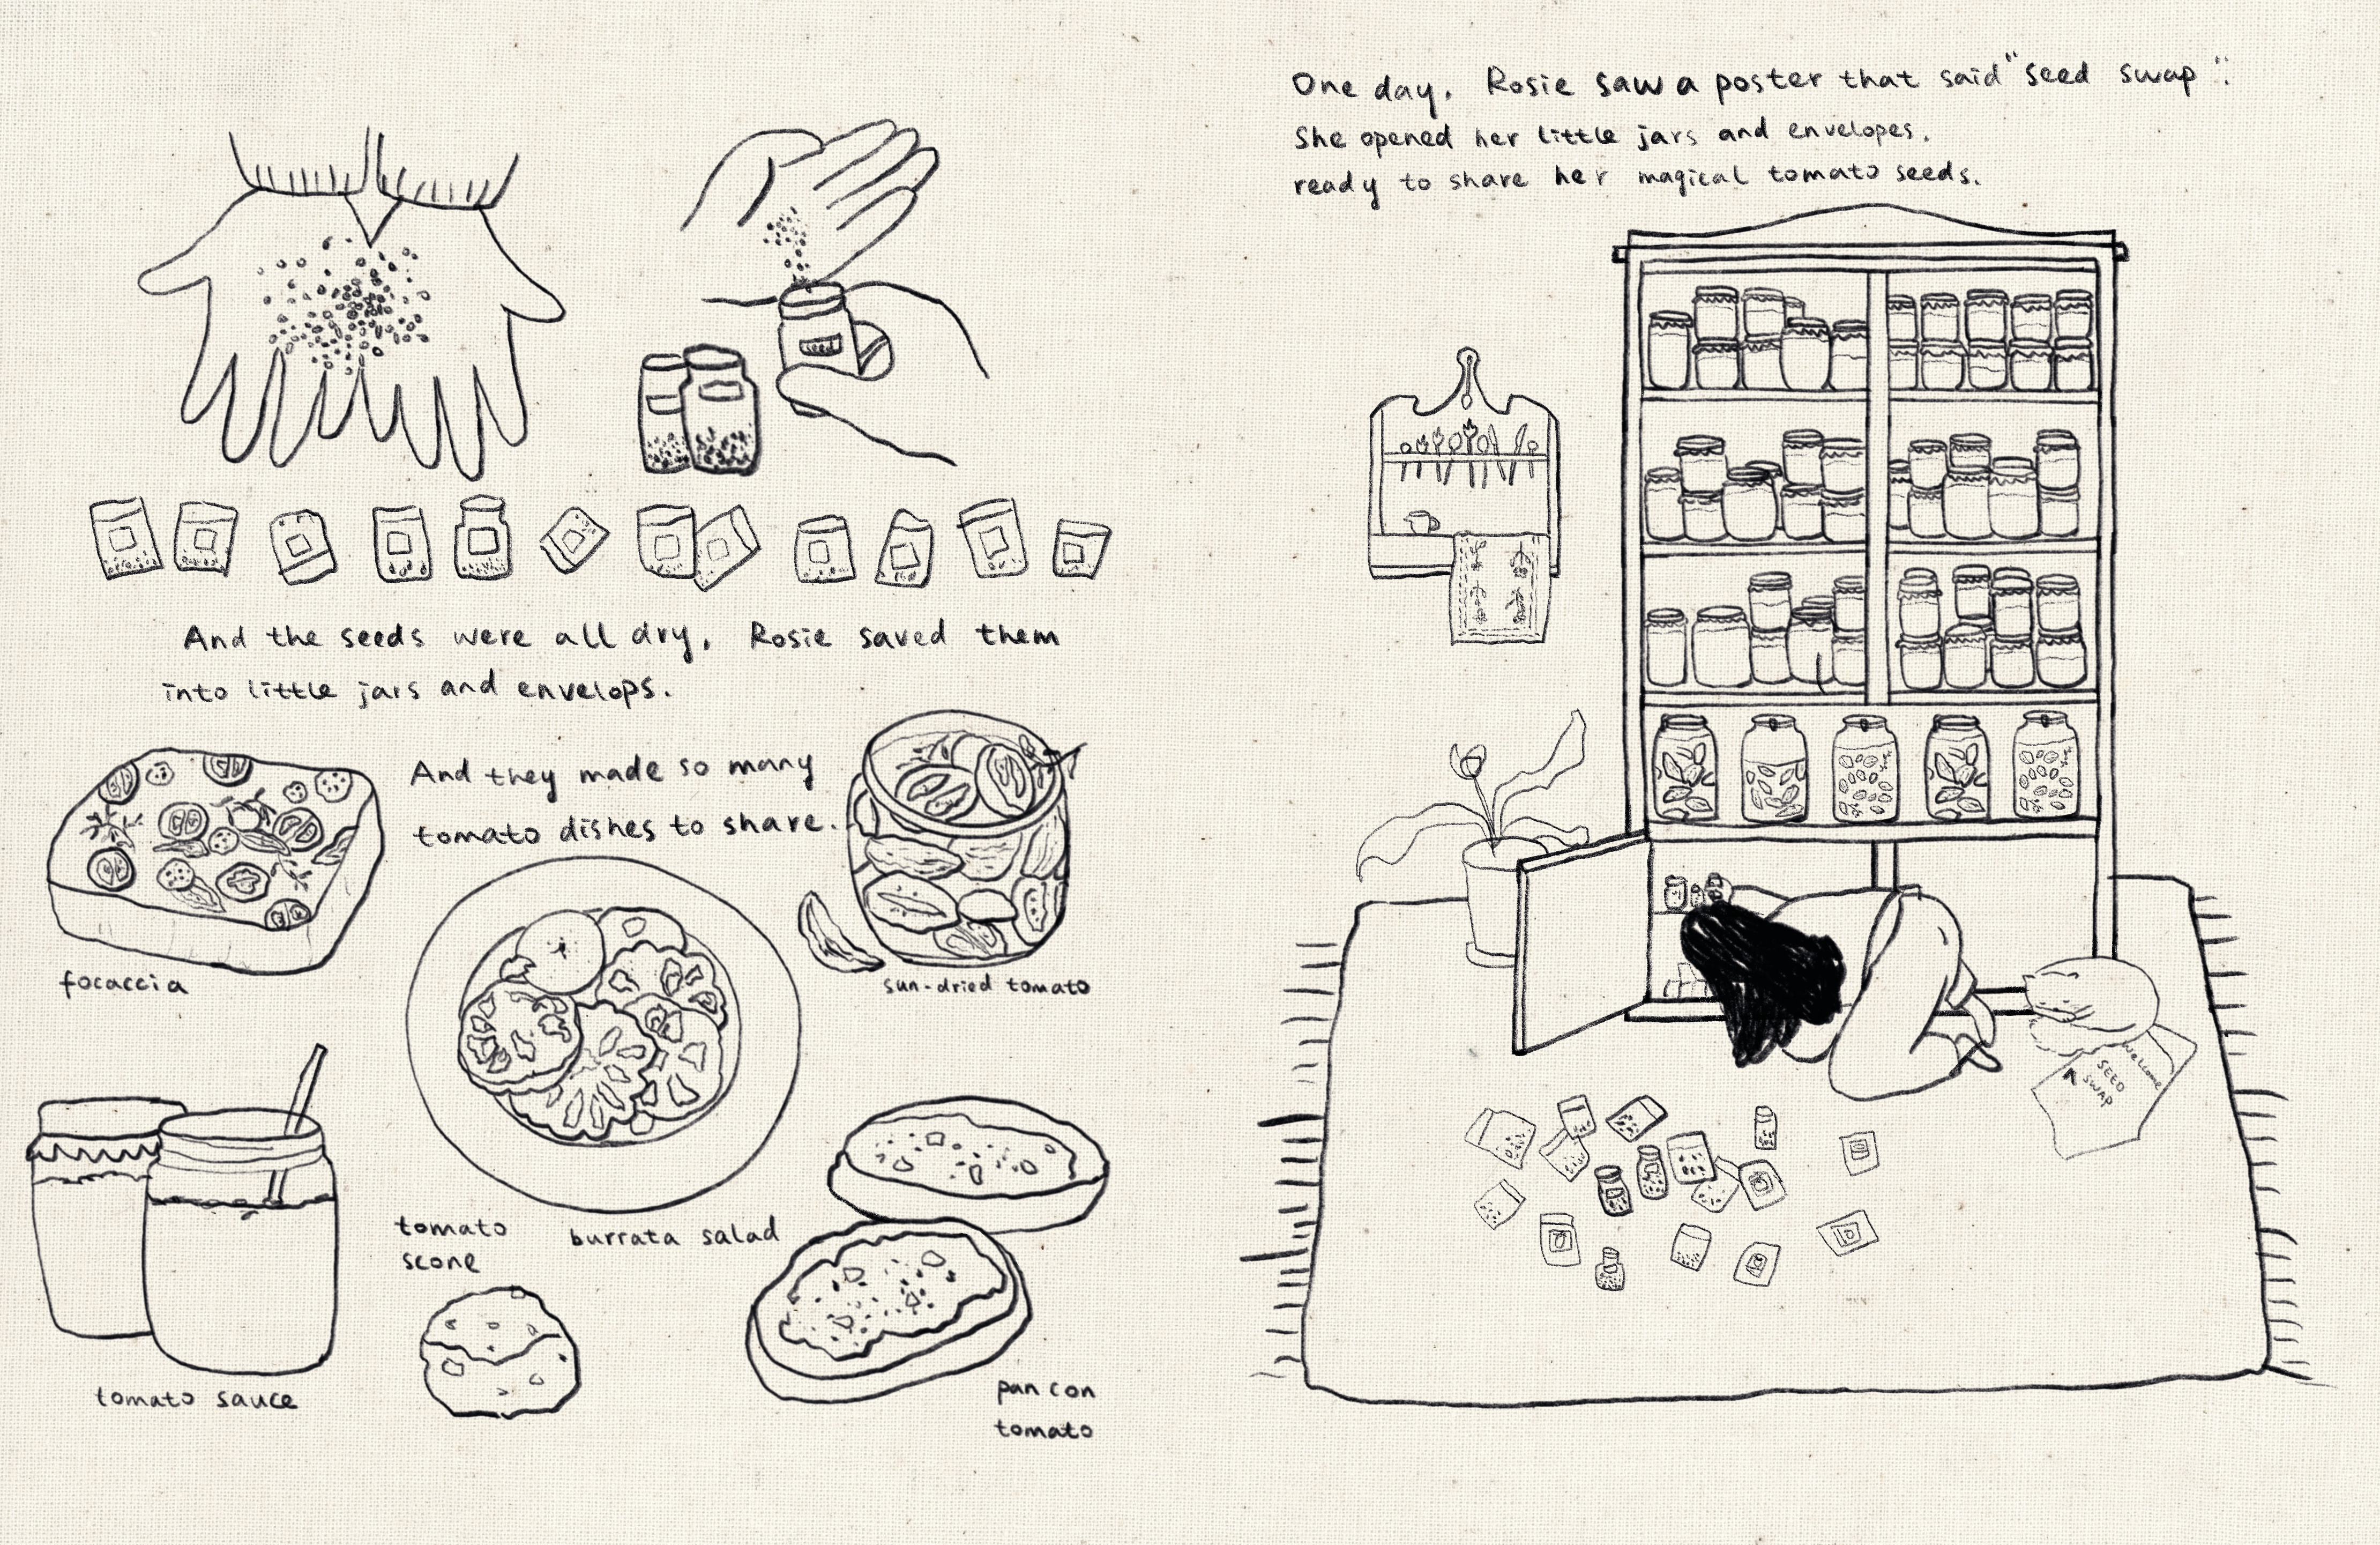 seed
And the seeds were all dry, Rosie saved them
into little jars and envelops.
And they made so many
tomato dishes to share.
focaccia
sun-dried tomato
tomato
scone
burrata salad
tomato sauce
pan con
tomato
One day, Rosie saw a poster that said "seed swap".
She opened her little jars and envelopes,
ready to share her magical tomato seeds.
Welcome
SEED
SWAP